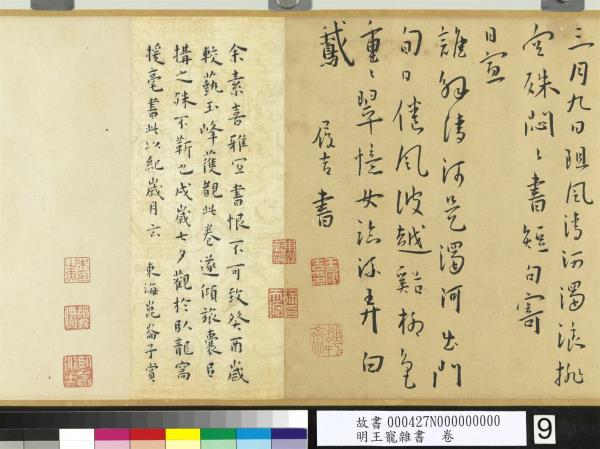 三月九日阻風清河濁浪排
空殊悶〻書短句寄
日宣
誰報清河是濁河出門
旬日倦風波越谿柳色
重〻翠憶女臨流弄白
鵞
履吉書
余素喜雅宜書恨不可致癸酉歲
較藝玉峰獲觀此卷遂傾旅囊
購之殊不靳也戊歲七夕觀於臥龍窩
援毫書此以紀歲月云
東海崑崙子賞
故書 000427N000000000
明王寵雜書 卷
9